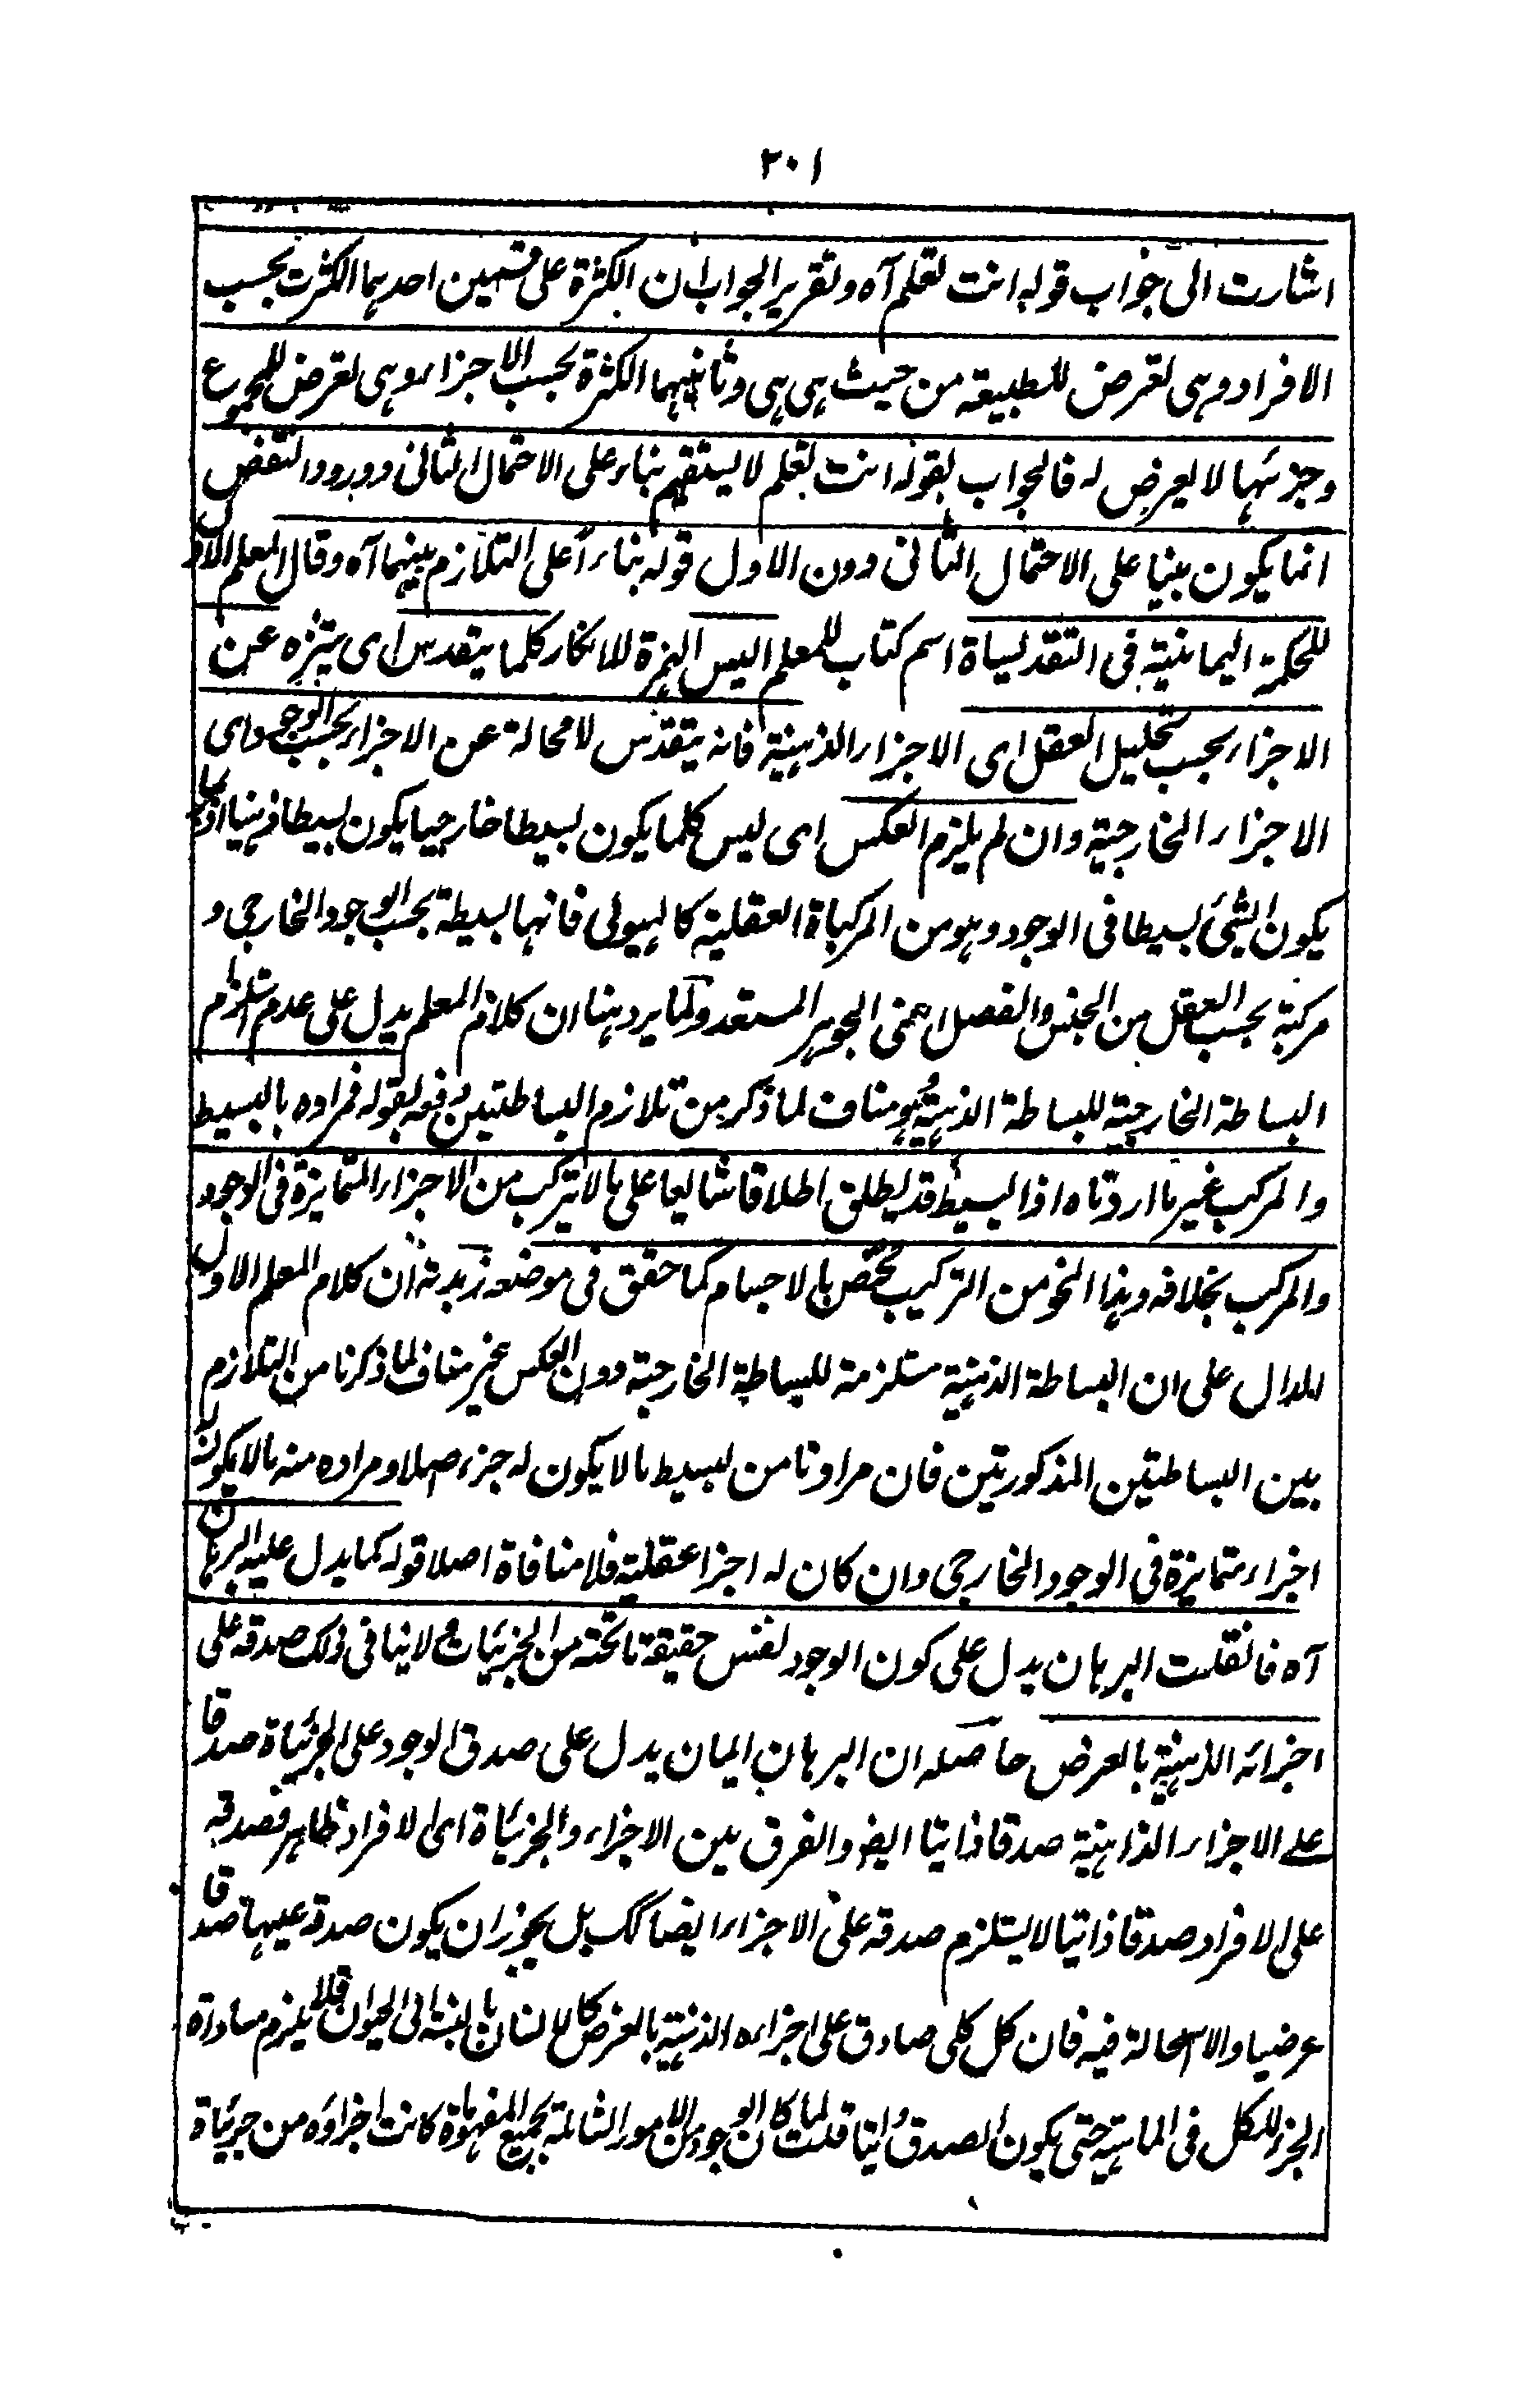 ٣٠١
اشارت الى جواب قوله انت تعلم آه وتقرير الجواب ان الكثرة على قسمين احدهما الكثرت بحسب
الافراد وهى تعرض للطبيعة من حيث هى هى وثانيهما الكثرة بحسب الاجزاء وهى تعرض للمجموع
وجزئها لا يعرض له فالجواب بقوله انت تعلم لا يستقيم بناء على الاحتمال الثانى وورود النقض
انما يكون مبنيا على الاحتمال الثانى دون الاول قوله بناءً على التلازم بينهما آه وقال المعلم الاول
للحكمة اليمانية فى التقديساة اسم كتاب للمعلم اليس الهمزة للانكار كلما يتقدس اى يتنزه عن
الاجزاء بحسب تحليل العقل اى الاجزاء الذهنية فانه يتقدس لا محالة عن الاجزاء بحسب الوجود اى
الاجزاء الخارجية وان لم يلزم العكس اى ليس كلما يكون بسيطا خارجيا يكون بسيطا ذهنيا اذ ربما
يكون الشئ بسيطا فى الوجود وهو من المركباة العقلية كالهيولى فانها بسيطة بحسب الوجود الخارجى و
مركبة بحسب العقل من الجنس والفصل اعنى الجوهر المستعد ولما يرد هنا ان كلام المعلم يدل على عدم استلزام
البساطة الخارجية للبساطة الذهنية وهو مناف لما ذكر من تلازم البساطتين دفعه بقوله فمراده بالبسيط
والمركب غير ما اردناه اذ البسيط قد يطلق اطلاقا شايعا على ما لا يتركب من الاجزاء المتمايزة فى الوجود
والمركب بخلافه وهذا النحو من التركيب مختص بالاجسام كما حقق فى موضعه زبدته ان كلام المعلم الاول
الدال على ان البساطة الذهنية مستلزمة للبساطة الخارجية دون العكس غير مناف لما ذكرنا من التلازم
بين البساطتين المذكورتين فان مرادنا من بسيط ما لا يكون له جزء اصلا ومراده منه ما لا يكون له
اجزاء متمايزة فى الوجود الخارجى وان كان له اجزا عقلية فلا منافاة اصلا قوله كما يدل عليه البرهان
آه فانقلت البرهان يدل على كون الوجود نفس حقيقة ما تحته من الجزئيات ولا ينافى ذلك صدقه على
اجزائه الذهنية بالعرض حاصله ان البرهان اليمان يدل على صدق الوجود على الجزئياة صدقا
على الاجزاء الذاهنية صدقا ذاتيا ايضو والفرق بين الاجزاء والجزئياة اى الافراد ظاهر فصدقه
على الافراد صدقا ذاتيا لا يستلزم صدقه على الاجزاء ايضا كك بل يجوز ان يكون صدقه عيها صدقا
عرضيا والاستحالة فيه فان كل كلى صادق على اجزاءه الذهنية بالعرض كالانسان بالنسبة الى الحيوان فلا يلزم مساواة
الجزء للكل فى الماهية حتى يكون الصدق ذاتيا قلت لما كان الوجود من الامور الشاملة بجميع المفهوماة كانت اجزاؤه من جزئياة